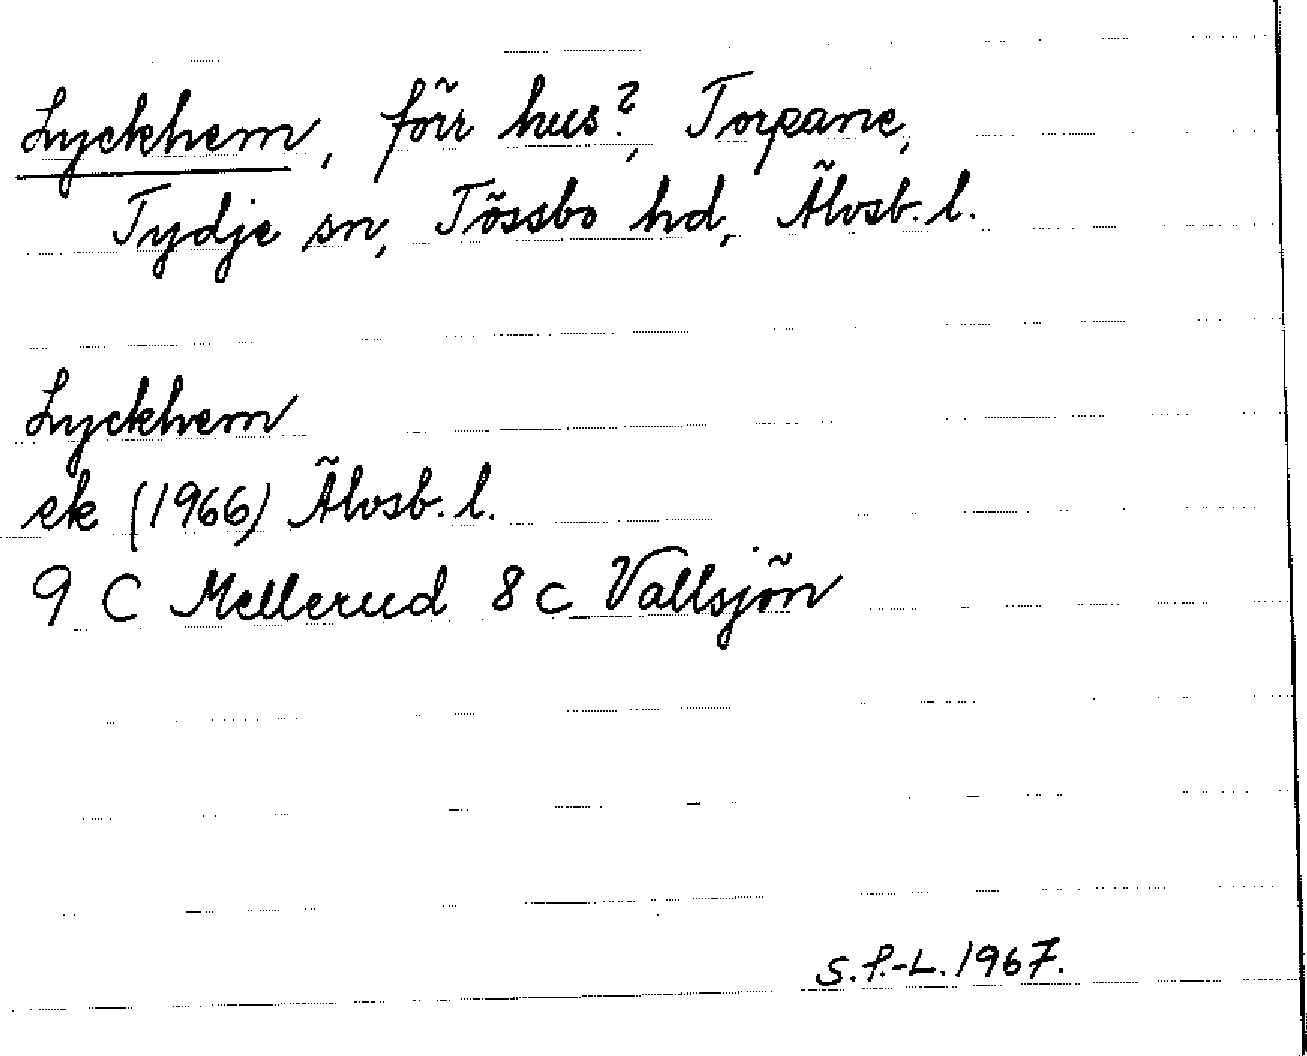 Lyckhem, förr hus?, Torpane,
Tydje sn, Tössbo hd, Älvsb. l.
Lyckhem
ek (1966) Älvsb. l.
9 C Mellerud 8 c Vallsjön
S.P.-L. 1967.